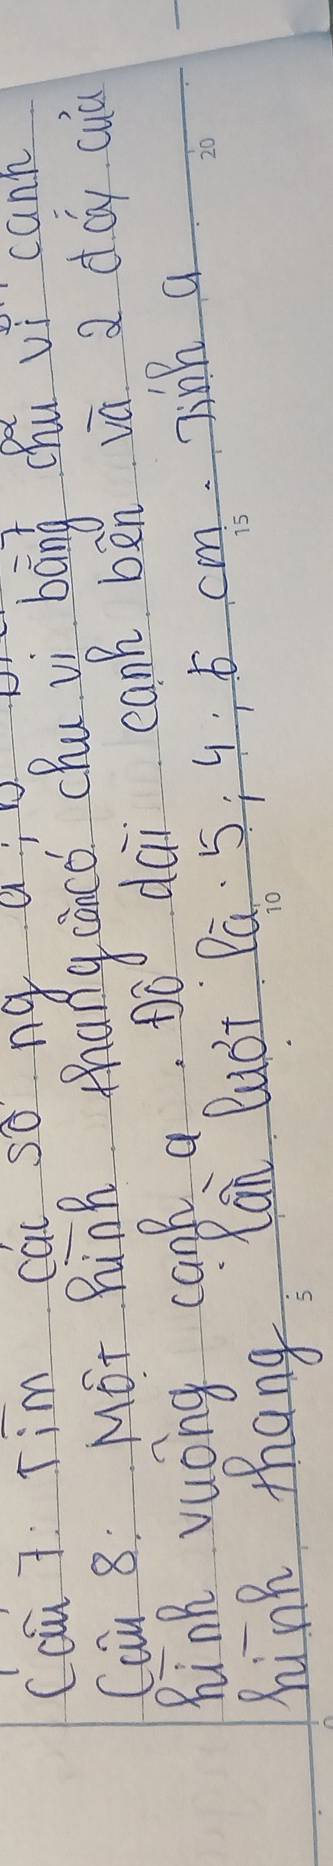 Câu 7: Tìm các số ng a, b
Câu 8: Một hình thang cân có chu vi bằng chu vi
hình vuông cạnh a. Độ dài cạnh bên và 2 đáy của
hình thang lần lượt là: 5, 4, cm. Tính a
0 5 10 15 20